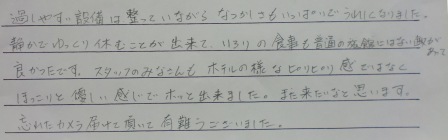 過しやすい設備は整っていながら なつかしさもいっぱいでうれしくなりました。
静かでゆっくり休むことが出来て、いろりの食事も普通の旅館にはない趣があって
良かったです。スタッフのみなさんも ホテルの様なピリピリ感ではなく
ほっこりと優しい感じでホッと出来ました。また来たいなと思います。
忘れたカメラ届けて頂いて有難うございました。